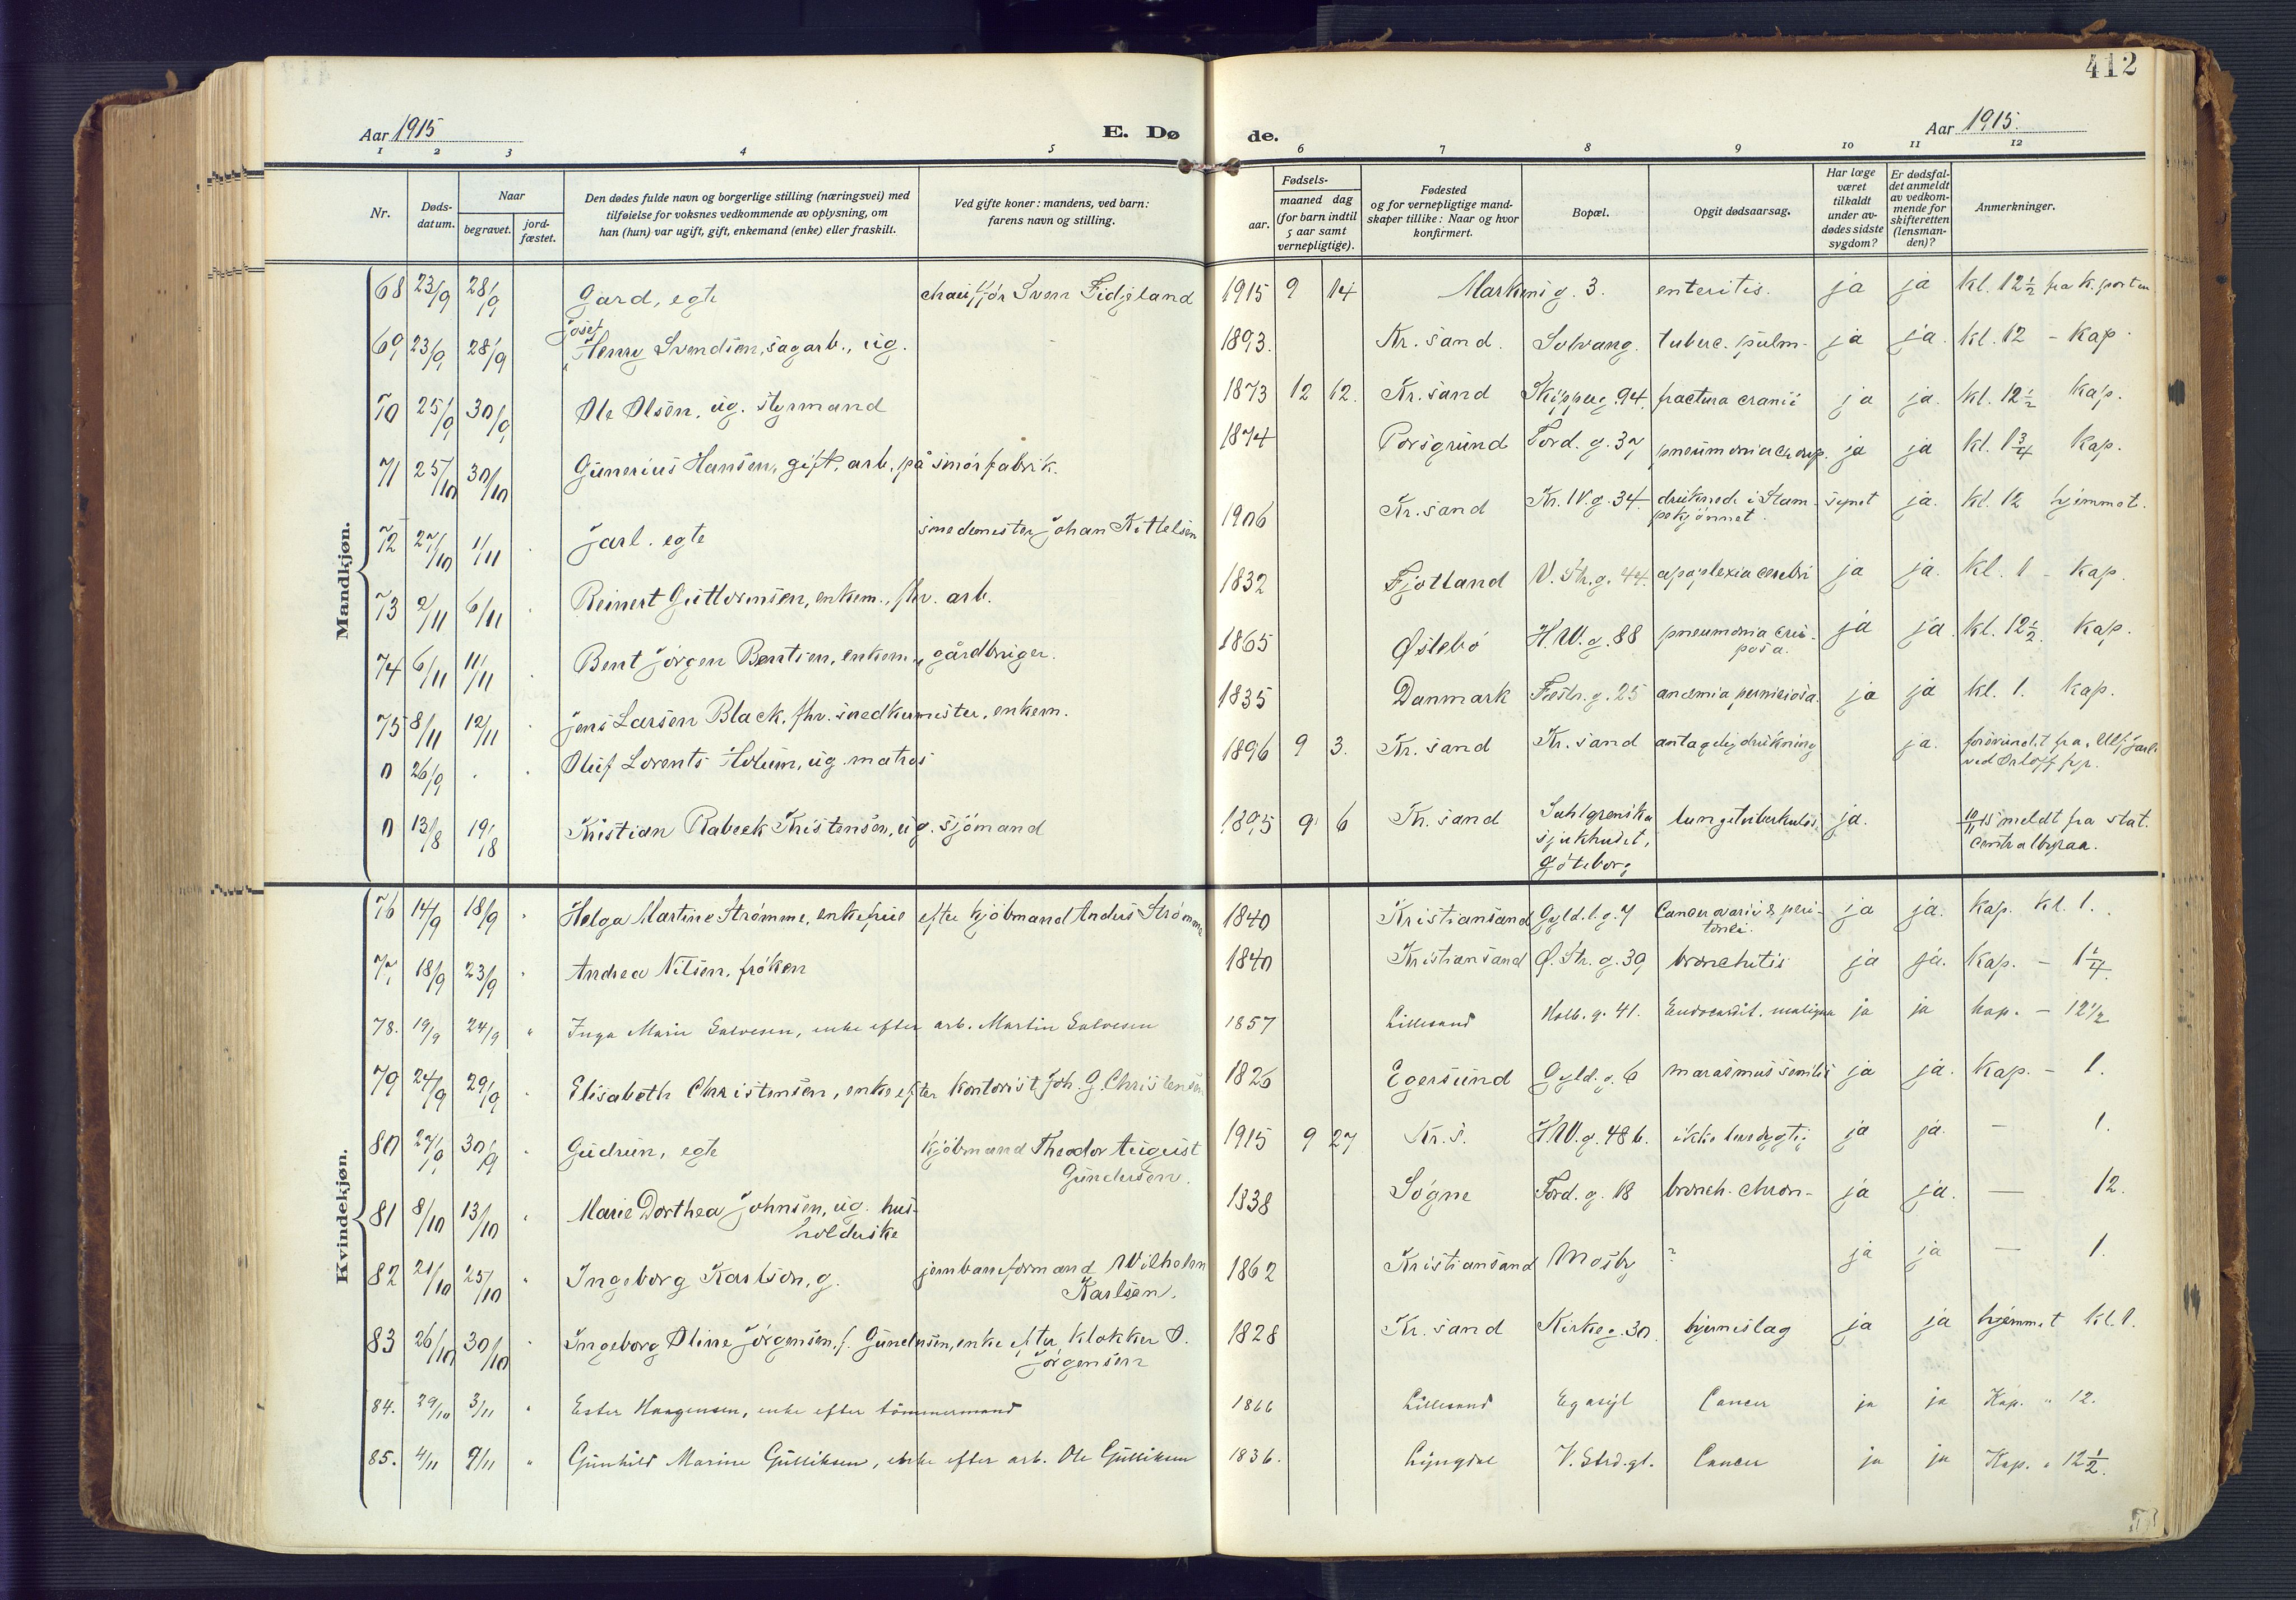 412
Aar 1915
E. Dø de.
Aar 1915.
1 2 3 4 5 6 7 8 9 10 11 12
Nr.
Dødsdatum.
Naar
begravet.
jordfæstet.
Den dødes fulde navn og borgerlige stilling (næringsvei) med
tilføielse for voksnes vedkommende av oplysning, om
han (hun) var ugift, gift, enkemand (enke) eller fraskilt.
Ved gifte koner: mandens, ved barn:
farens navn og stilling.
Fødsels-
aar.
maaned dag
(for barn indtil
5 aar samt
vernepligtige).
Fødested
og for vernepligtige mand-
skaper tillike: Naar og hvor
konfirmert.
Bopæl.
Opgit dødsaarsag.
Har læge
været
tilkaldt
under av-
dødes sidste
sygdom?
Er dødsfal-
det anmeldt
av vedkom-
mende for
skifteretten
(lensman-
den)?
Anmerkninger.
Mandkjøn.
68 23/9 28/9 Gard, egte chauffør Sven Fidjeland 1915 9 14 Markens g. 3. enteritis. ja ja kl. 12 1/2 fra k. porten
69 23/9 28/9 Josef Henry Svendsen, sagarb., ug. 1893. Kr. sand. Solvang. tuberc. pulm. ja ja. kl. 12 - Kap.
70 25/9 30/9 Ole Olsen, ug. styrmand 1873 12 12. Kr. sand Skipperg. 94. fractura cranii ja ja. kl. 12 1/2 Kap.
71 25/10 30/10 Gunerius Hansen, gift, arb. på smørfabrik. 1874 Porsgrund Tord. g. 37 pneumonia croup. ja ja kl. 1 3/4 Kap.
72 27/10 1/11 Jarl. egte smedemester Johan Kittelsen 1906 Kr. sand Kr. IV. g. 34. druknede i Stam-
pekjønnet. synet ja. kl. 12 hjemmet.
73 2/11 6/11 Reinert Guttormsen, enkem., fhv. arb. 1832 Fjotland V. Str. g. 44. apoplexia cerebri ja ja. kl. 1 - Kap.
74 6/11 11/11 Bent Jørgen Bentsen, enkem., gårdbruger. 1865 Østebø H. W. g. 88 pneumonia cru-
posa. ja ja. kl. 12 1/2. Kap.
75 8/11 12/11 Jens Larsen Black, fhv. snedkermester, enkem. 1835 Danmark Festn. g. 25 anæmia perniciosa. ja ja kl. 1. Kap.
0 26/9 Oluf Lorents Holum, ug. matros 1896 9 3. Kr. sand Kr. sand antagelig drukning ja. forsvundet fra
ved fyr.
0 13/8 19/8 Kristian Rabeek Kristensen, ug. sjømand 1895 9 6 Kr. sand Sahlgrenska
sjukhuset,
Göteborg lungetuberkulos. ja. 10/11 15 meldt fra stat.
Centralbyraa.
Kvindekjøn.
76 14/9 18/9 Helga Martine Strømme, enkefrue efter kjøbmand Anders Strømme 1840 Kristiansand Gyld. l. g. 7 Cancer ovarii & peri-
tonei. ja ja. Kap. kl. 1.
77 18/9 23/9 Andrea Nilsen, frøken 1840 Kristiansand Ø. Str. g. 39 bronchitis ja ja. Kap. - 1 1/4.
78. 19/9 24/9 " Inga Marie Salvesen, enke efter arb. Martin Salvesen 1857 Lillesand Holb. g. 41. Endocardit. maligna ja ja Kap. - 12 1/2
79 24/9 29/9 Elisabeth Christensen, enke efter kontorist Joh. G. Christensen 1826 Egersund Gyld. g. 6 marasmus senilis ja ja. Kap. - 1.
80 27/9 30/9 Gudrun, egte kjøbmand Theodor August
Gundersen. 1915 9 27 Kr. s. H W. g. 48 b. ikke levedygtig ja ja. - 1.
81 8/10 13/10 Marie Dorthea Johnsen, ug. hus-
holderske 1838 Søgne Tord. g. 18 bronch. chron. ja ja. - 12.
82 21/10 25/10 Ingeborg Karlson, g. jernbaneformand Wilhelm
Karlsen. 1862 Kristiansand Mosby ? ja ja - 1.
83 26/10 30/10 Ingeborg Oline Jørgensen, f. Gundersen, enke efter klokker O.
Jørgensen 1828 Kr. sand Kirkeg. 30. hjerneslag ja ja hjemmet kl. 1.
84. 29/10 3/11 " Ester Haagensen, enke efter tømmermand 1866 Lillesand Egasyl Cancer ja ja Kap. " 12.
85. 4/11 9/11 " Gunhild Marine Gulliksen, enke efter arb. Ole Gulliksen 1836. Lyngdal V. Strd. gt. Cancer ja ja Kap. " 12 1/2.